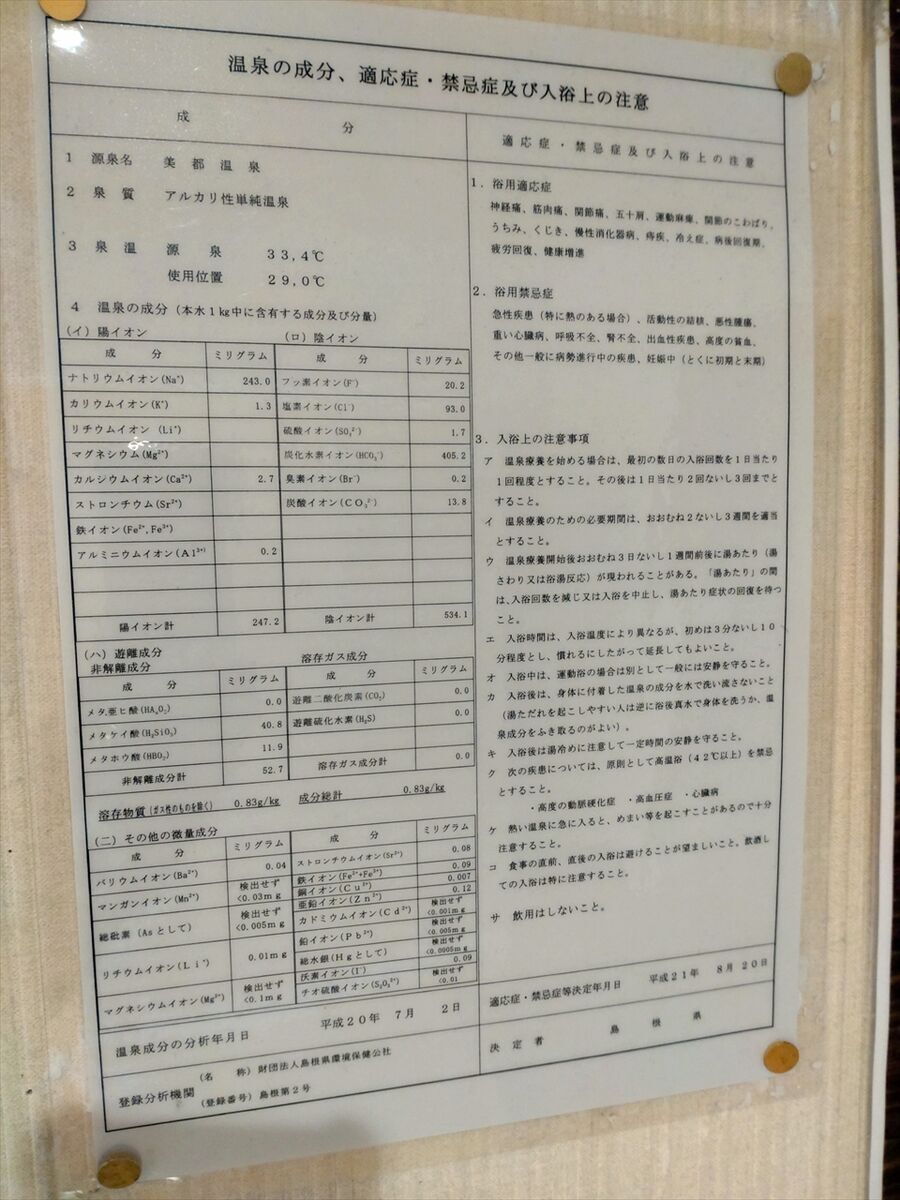 温泉の成分、適応症・禁忌症及び入浴上の注意
成 分
1 源泉名 美都温泉
2 泉質 アルカリ性単純温泉
3 泉温 源泉 33,4℃
使用位置 29,0℃
4 温泉の成分(本水1kg中に含有する成分及び分量)
(イ)陽イオン (ロ)陰イオン
成 分 ミリグラム 成 分 ミリグラム
ナトリウムイオン(Na⁺) 243.0 フッ素イオン(F⁻) 20.2
カリウムイオン(K⁺) 1.3 塩素イオン(Cl⁻) 93.0
リチウムイオン (Li⁺) 硫酸イオン(SO₄²⁻) 1.7
マグネシウム(Mg²⁺) 炭化水素イオン(HCO₃⁻) 405.2
カルシウムイオン(Ca²⁺) 2.7 臭素イオン(Br⁻) 0.2
ストロンチウム(Sr²⁺) 炭酸イオン(CO₃²⁻) 13.8
鉄イオン(Fe²⁺,Fe³⁺)
アルミニウムイオン(Al³⁺) 0.2
陽イオン計 247.2 陰イオン計 534.1
(ハ)遊離成分
非解離成分 溶存ガス成分
成 分 ミリグラム 成 分 ミリグラム
メタ亜ヒ酸(HAₛO₂) 0.0 遊離二酸化炭素(CO₂) 0.0
メタケイ酸(H₂SiO₃) 40.8 遊離硫化水素(H₂S) 0.0
メタホウ酸(HBO₂) 11.9
非解離成分計 52.7 溶存ガス成分計 0.0
溶存物質(ガス性のものを除く) 0.83g/kg 成分総計 0.83g/kg
(二)その他の微量成分
成 分 ミリグラム 成 分 ミリグラム
バリウムイオン(Ba²⁺) 0.04 ストロンチウムイオン(Sr²⁺) 0.08
マンガンイオン(Mn²⁺) 検出せず <0.03mg 鉄イオン(Fe²⁺+Fe³⁺) 0.09
銅イオン(Cu²⁺) 0.007
亜鉛イオン(Zn²⁺) 0.12
総砒素(Asとして) 検出せず <0.005mg カドミウムイオン(Cd²⁺) 検出せず <0.001mg
鉛イオン(Pb²⁺) 検出せず <0.005mg
リチウムイオン(Li⁺) 0.01mg 総水銀(Hgとして) 検出せず <0.0005mg
沃素イオン(I⁻) 0.09
マグネシウムイオン(Mg²⁺) 検出せず <0.1mg チオ硫酸イオン(S₂O₃²⁻) 検出せず <0.01
温泉成分の分析年月日 平成20年 7月 2日
登録分析機関 (名 称)財団法人島根県環境保健公社
(登録番号)島根第2号
適応症・禁忌症及び入浴上の注意
1.浴用適応症
神経痛、筋肉痛、関節痛、五十肩、運動麻痺、関節のこわばり、
うちみ、くじき、慢性消化器病、痔疾、冷え症、病後回復期、
疲労回復、健康増進
2.浴用禁忌症
急性疾患(特に熱のある場合)、活動性の結核、悪性腫瘍、
重い心臓病、呼吸不全、腎不全、出血性疾患、高度の貧血、
その他一般に病勢進行中の疾患、妊娠中(とくに初期と末期)
3.入浴上の注意事項
ア 温泉療養を始める場合は、最初の数日の入浴回数を1日当たり
1回程度とすること。その後は1日当たり2回ないし3回までと
すること。
イ 温泉療養のための必要期間は、おおむね2ないし3週間を適当
とすること。
ウ 温泉療養開始後おおむね3日ないし1週間前後に湯あたり(湯
さわり又は浴湯反応)が現われることがある。「湯あたり」の間
は、入浴回数を減じ又は入浴を中止し、湯あたり症状の回復を待つ
こと。
エ 入浴時間は、入浴温度により異なるが、初めは3分ないし10
分程度とし、慣れるにしたがって延長してもよいこと。
オ 入浴中は、運動浴の場合は別として一般には安静を守ること。
カ 入浴後は、身体に付着した温泉の成分を水で洗い流さないこと
(湯ただれを起こしやすい人は逆に浴後真水で身体を洗うか、温
泉成分をふき取るのがよい)。
キ 入浴後は湯冷めに注意して一定時間の安静を守ること。
ク 次の疾患については、原則として高温浴(42℃以上)を禁忌
とすること。
・高度の動脈硬化症 ・高血圧症 ・心臓病
ケ 熱い温泉に急に入ると、めまい等を起こすことがあるので十分
注意すること。
コ 食事の直前、直後の入浴は避けることが望ましいこと。飲酒し
ての入浴は特に注意すること。
サ 飲用はしないこと。
適応症・禁忌症等決定年月日 平成21年 8月20日
決定者 島根県